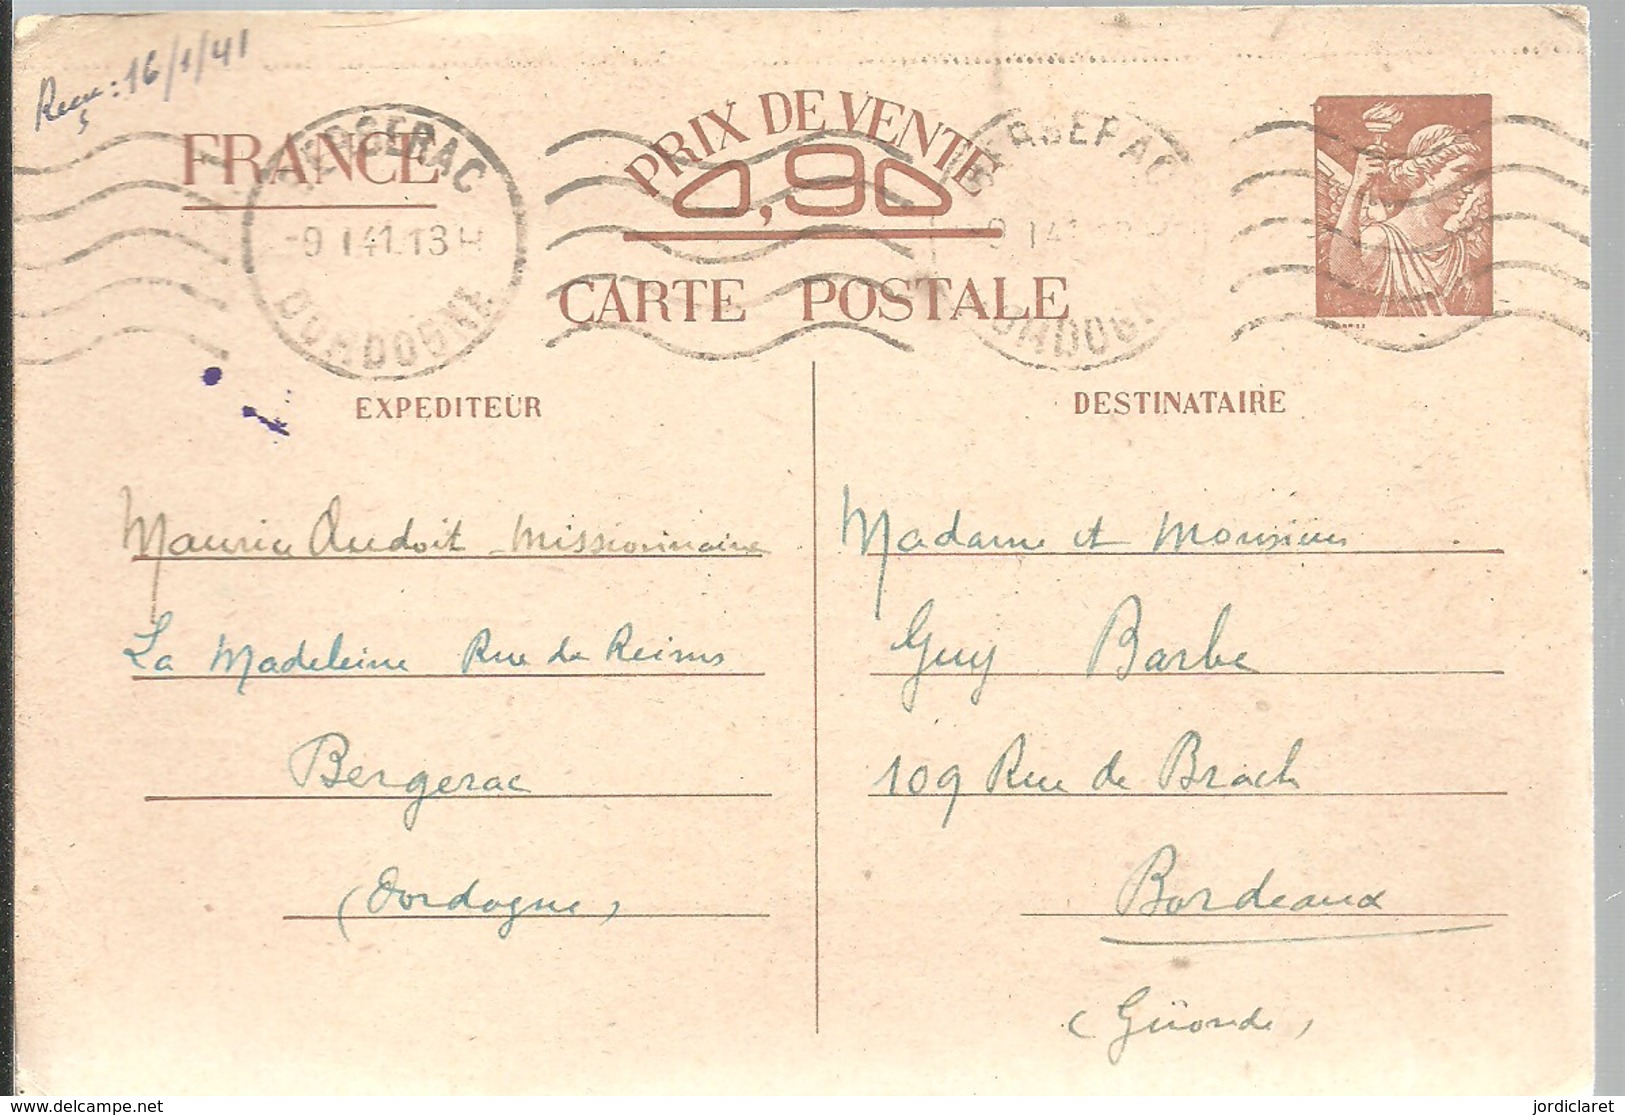 Reçu : 16/1/41
FRANCE
PRIX DE VENTE
0,90
CARTE POSTALE
BERGERAC
-9 I 41.13H
DORDOGNE
BERGERAC
-9 I 41
DORDOGNE
EXPEDITEUR
Maurice Audoit missionnaire
La Madeleine Rue de Reims
Bergerac
(Dordogne)
DESTINATAIRE
Madame et Monsieur
Guy Barbe
109 Rue de Brach
Bordeaux
(Gironde)
www.delcampe.net
jordiclaret